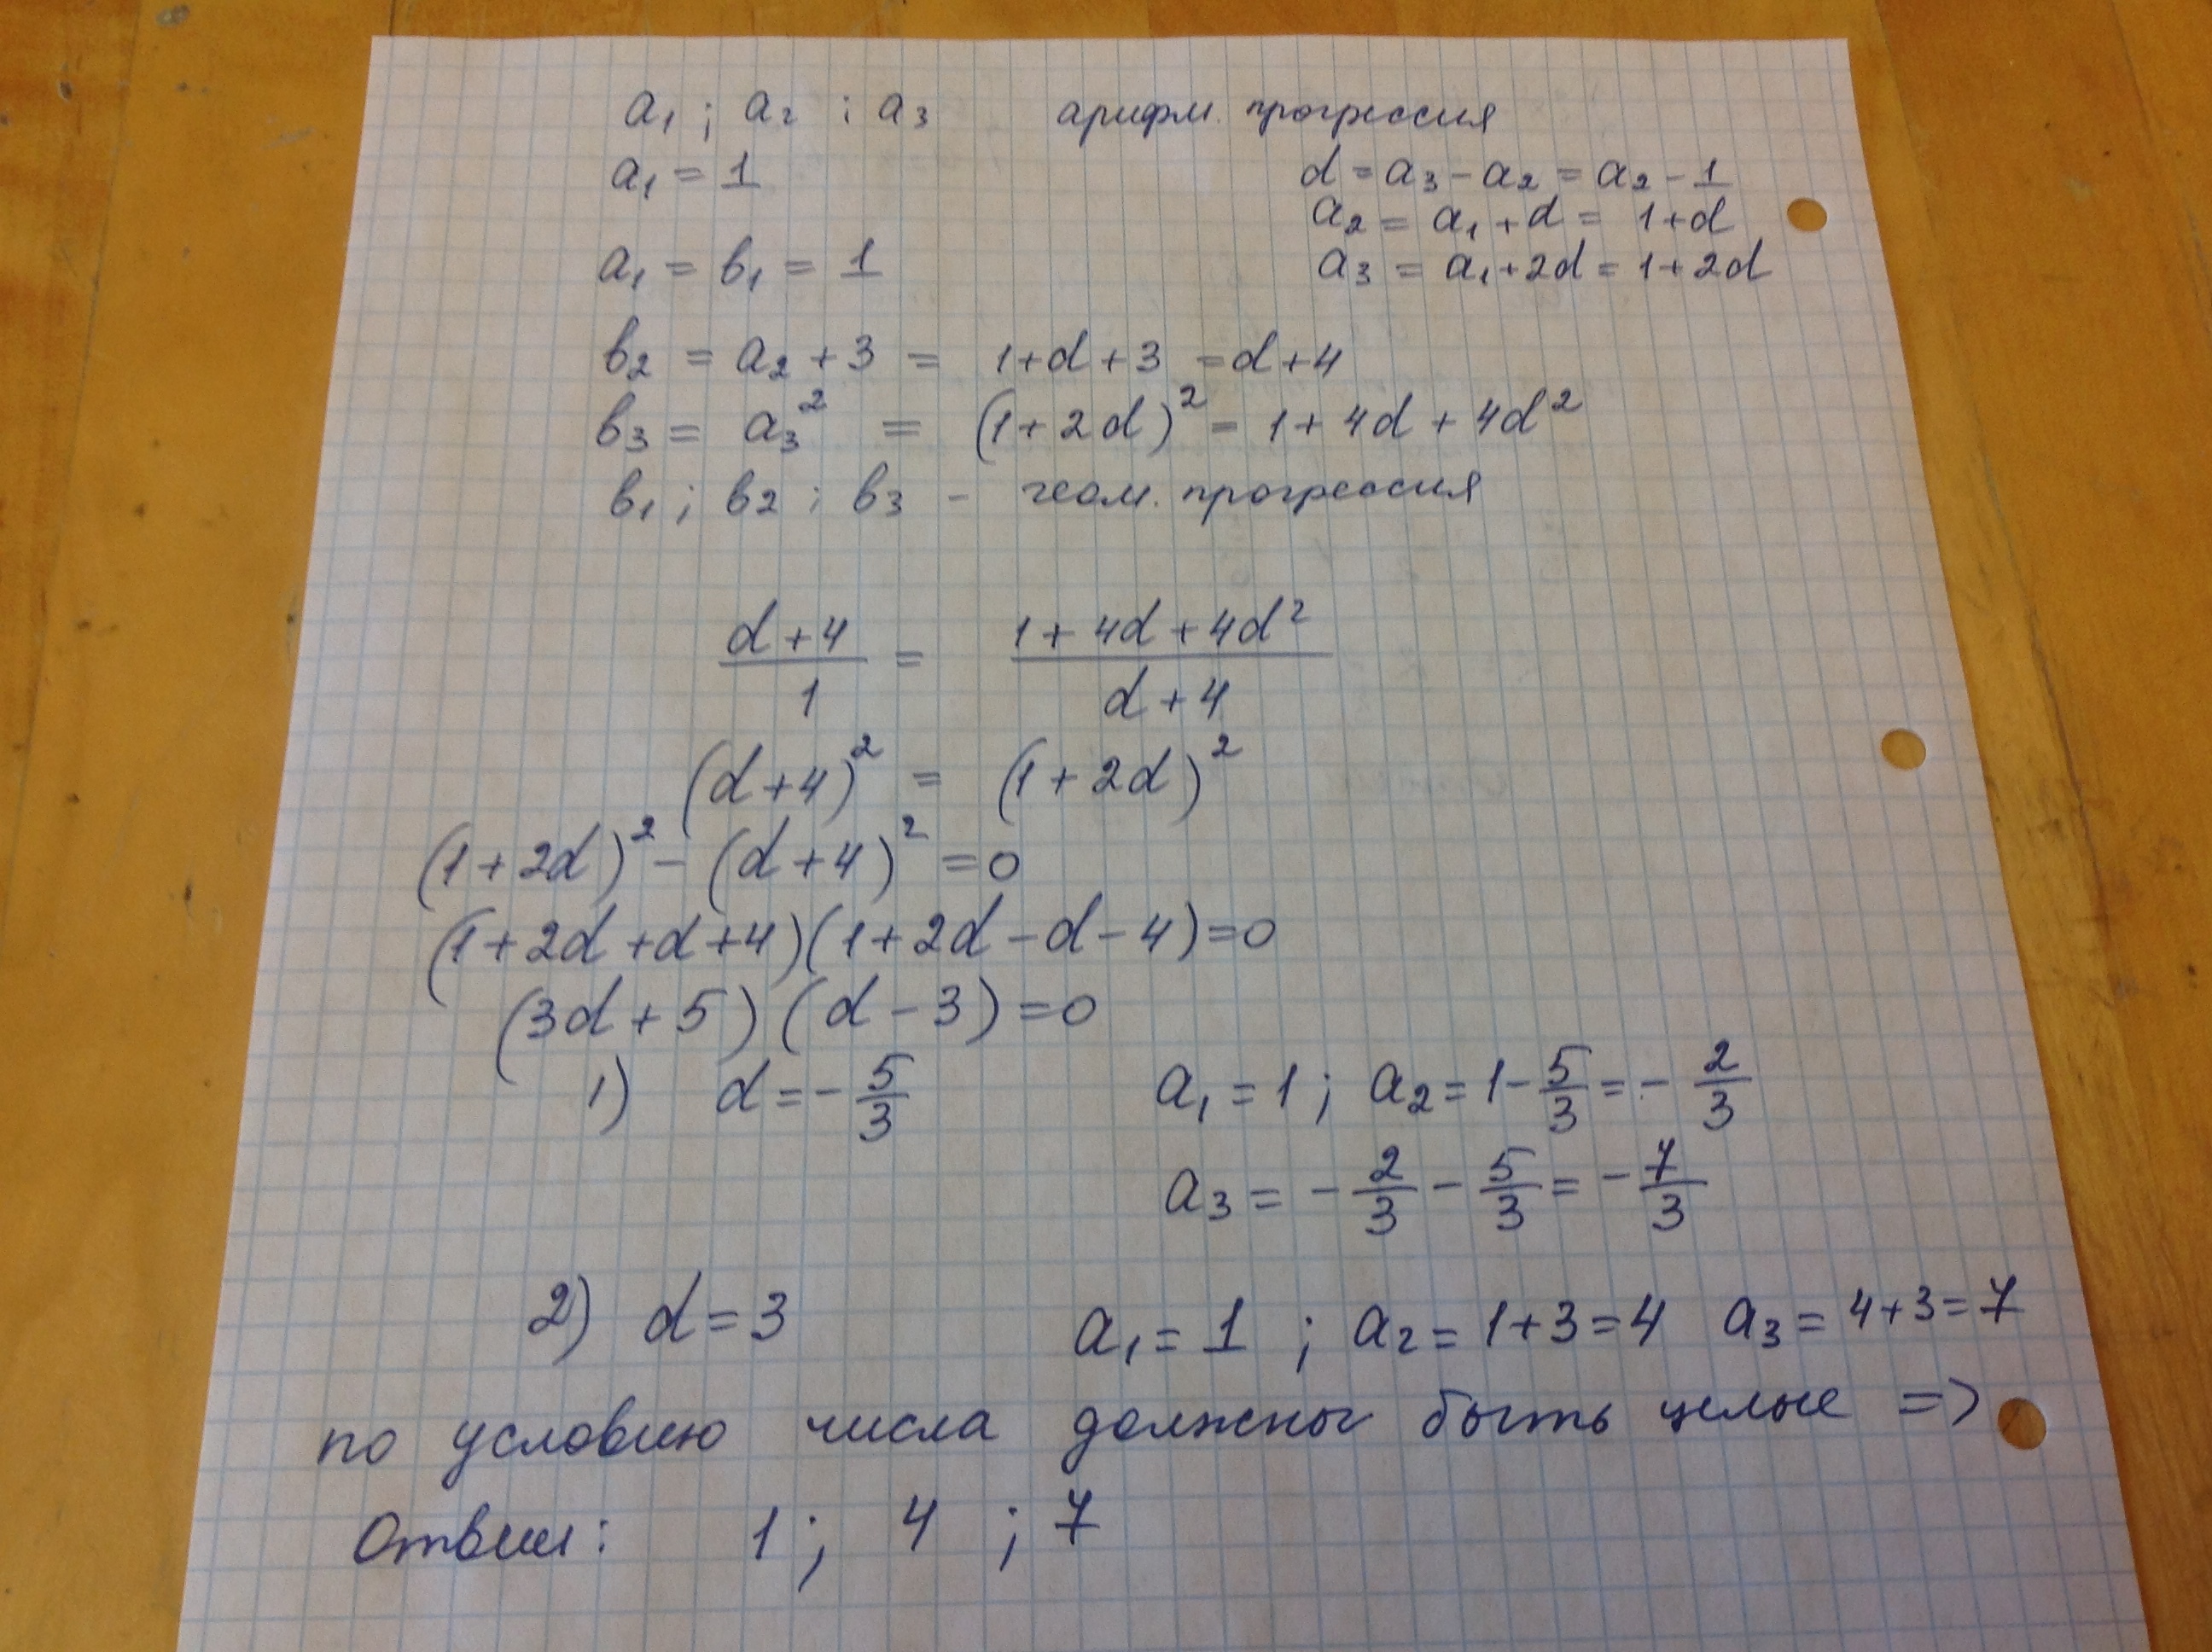 a₁ ; a₂ ; a₃ арифм. прогрессия
a₁ = 1 d = a₃ - a₂ = a₂ - 1
a₂ = a₁ + d = 1+d
a₁ = b₁ = 1 a₃ = a₁+2d = 1+2d
b₂ = a₂ + 3 = 1+d+3 = d+4
b₃ = a₃² = (1+2d)² = 1+4d+4d²
b₁ ; b₂ ; b₃ - геом. прогрессия
(d+4)/1 = (1+4d+4d²)/(d+4)
(d+4)² = (1+2d)²
(1+2d)² - (d+4)² = 0
(1+2d+d+4)(1+2d-d-4)=0
(3d+5)(d-3)=0
1) d = -5/3 a₁ = 1 ; a₂ = 1 - 5/3 = - 2/3
a₃ = - 2/3 - 5/3 = - 7/3
2) d = 3 a₁ = 1 ; a₂ = 1+3 = 4 a₃ = 4+3 = 7
по условию числа должны быть целые =>
Ответ: 1 ; 4 ; 7